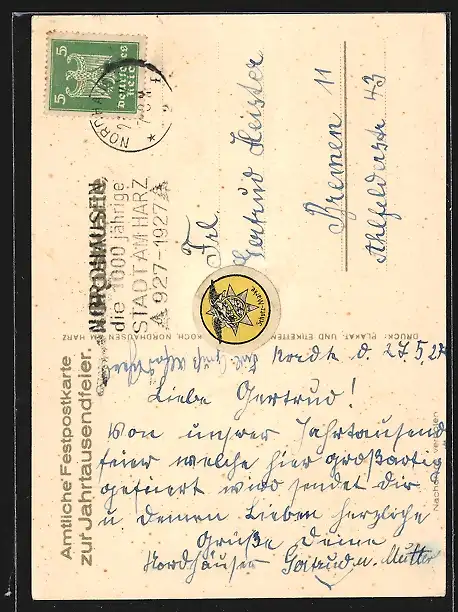 Amtliche Festpostkarte
zur Jahrtausendfeier.
NORDHAUSEN
die 1000 jährige
STADT AM HARZ
927-1927
NORDHAUSEN
5 5
Deutsches
Reich
Frl.
Gertrud Heister
Bremen 11
Ahlfelderstr 43
Schutz-Marke
DRUCK: PLAKAT- UND ETIKETTEN
KOCH, NORDHAUSEN AM HARZ
Nachdruck verboten
d. 27.5.27
Liebe Gertrud!
Von unsrer Jahrtausend
feier welche hier großartig
gefeiert wird sendet Dir
u. deinen Lieben herzliche
Grüße deine
Nordhäuser u. Mutter